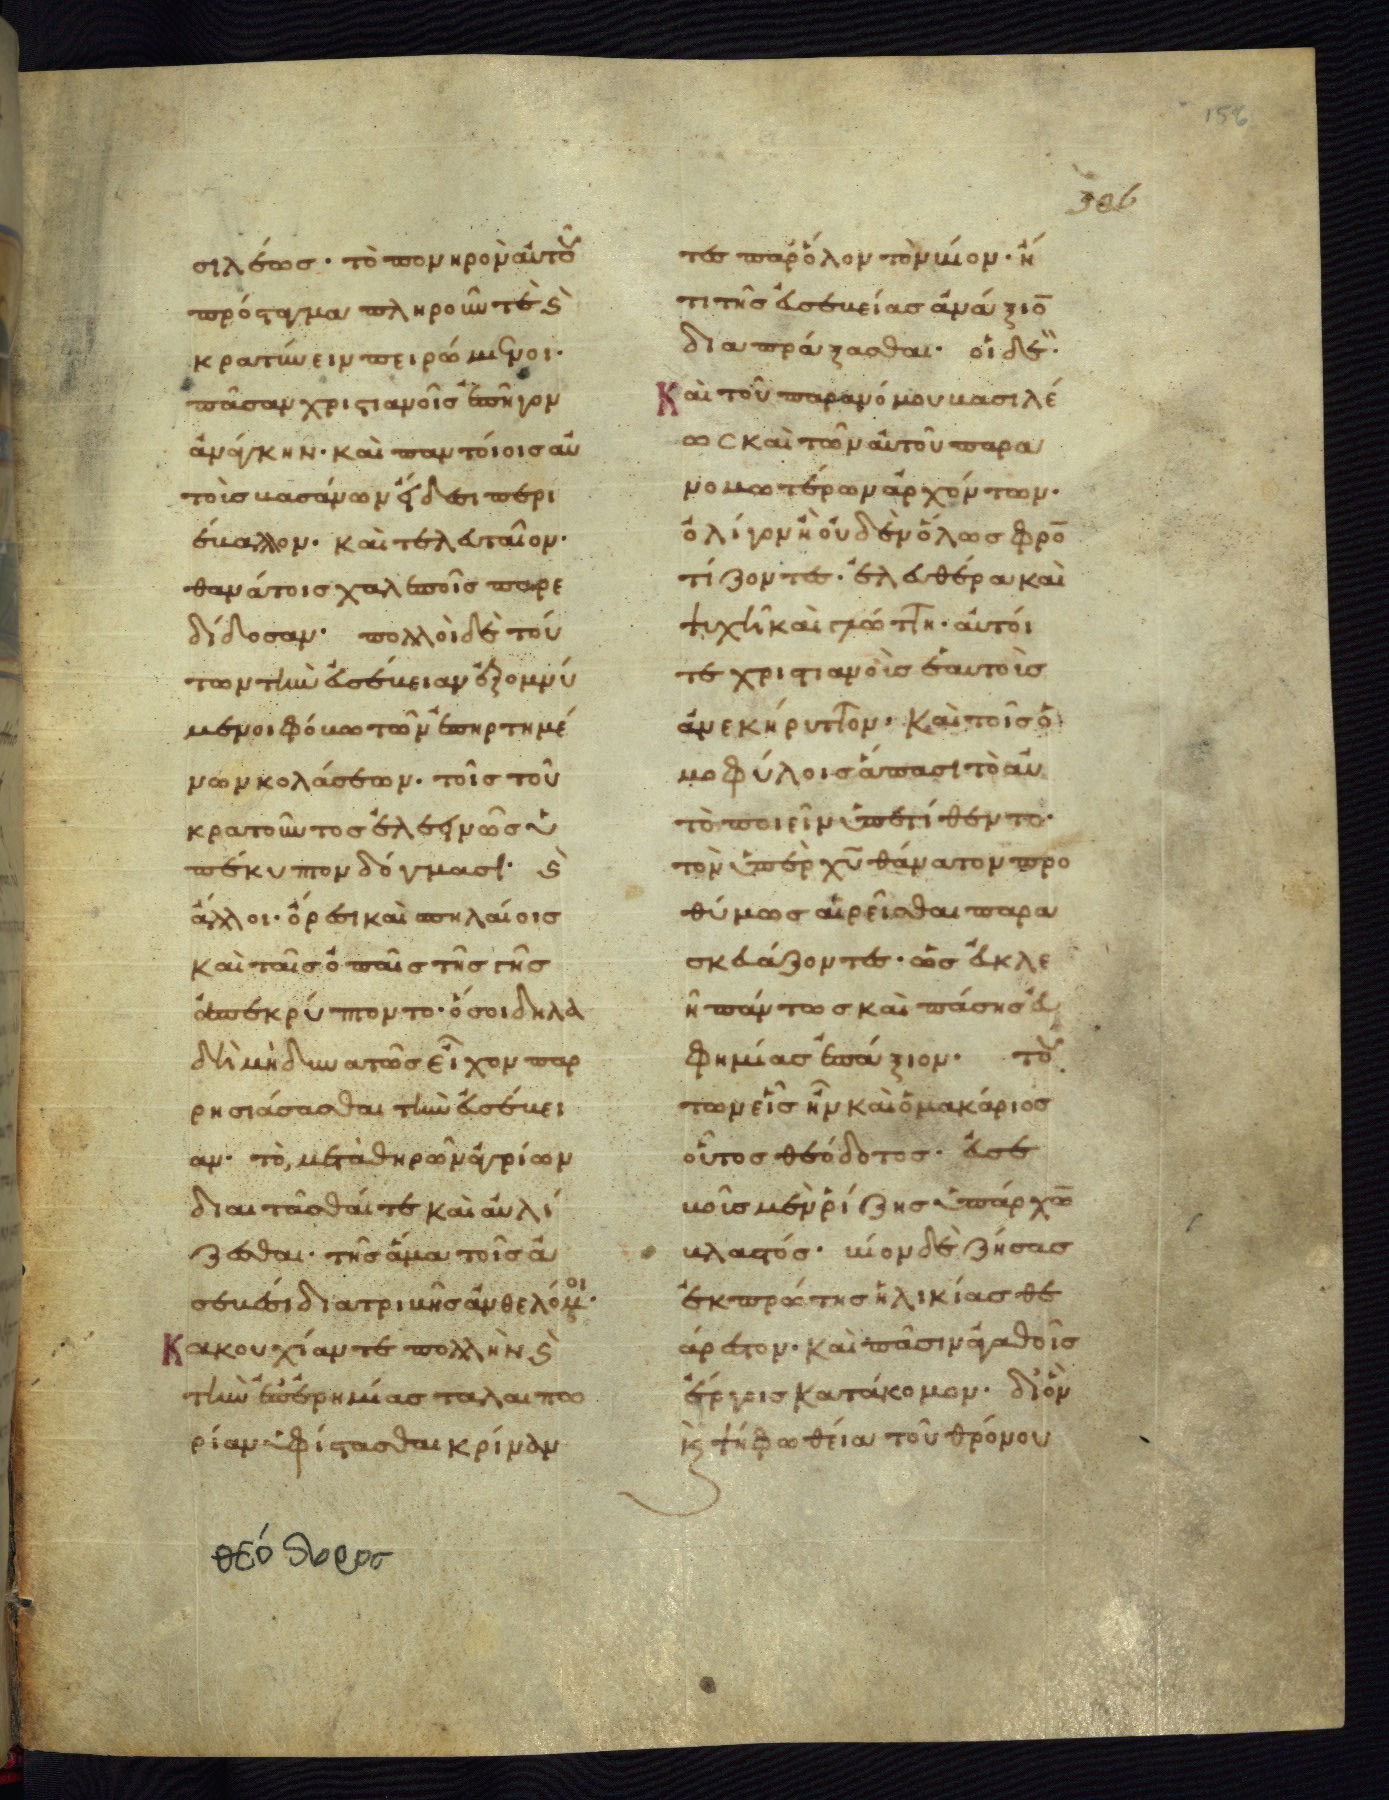 156
306
σιλέως· τὸ πονηρὸν αὐτοῦ
πρόσταγμα πληροῦντές καὶ
κρατύνειν πειρώμενοι·
πᾶσαν χριστιανοῖς ἐπῆγον
ἀνάγκην· καὶ παντοίοις αὐ
τοὺς βασάνων εἴδεσι περι
έβαλλον· καὶ τελευταῖον·
θανάτοις χαλεποῖς παρε
δίδοσαν· πολλοὶ δὲ τού
των τὴν εὐσέβειαν ἐξομνύ
μενοι φόβω τῶν ἐπηρτημέ
νων κολάσεων· τοῖς τοῦ
κρατοῦντος ἐλεεινῶς ὑ
πέκυπτον δόγμασι· καὶ
ἄλλοι· ὄρεσι καὶ σπηλαίοις
καὶ ταῖς ὀπαῖς τῆς γῆς
ἀπεκρύπτοντο· ὅσοι δηλα
δὴ μὴ δυνατῶς εἶχον παρ
ρησιάσασθαι τὴν εὐσέβει
αν· τὸ, μετὰ θηρῶν ἀγρίων
διαιτᾶσθαί τε καὶ αὐλί
ζεσθαι· τῆς ἅμα τοῖς ἀ
σεβέσι διατριβῆς ἀνθελόμενοι·
Κακουχίαν τε πολλὴν καὶ
τὴν ἐπ' ἐρημίας ταλαιπω
ρίαν ὑφίστασθαι κρίνον
τες παρ' ὅλον τὸν βίον· ἤ
τι τῆς εὐσεβείας ἀνάξιον
διαπράξασθαι· οἱ δέ·
Καὶ τοῦ παρανόμου βασιλέ
ως καὶ τῶν αὐτοῦ παρα
νομωτέρων ἀρχόντων·
ὀλίγον ἢ οὐδὲν ὅλως φρον
τίζοντες· ἐλευθέρα καὶ
ψυχῆ καὶ γλώττη· αὐτοί
τε χριστιανοὺς ἑαυτοὺς
ἀνεκήρυττον· Καὶ τοῖς ὁ
μοφύλοις ἅπασι τὸ αὐ
τὸ ποιεῖν ὑπετίθεντο·
τὸν ὑπὲρ χυ θάνατον προ
θύμως αἱρεῖσθαι παρα
σκευάζοντες· ὡς εὐκλε
ῆ πάντως καὶ πάσης εὐ
φημίας ἐπάξιον· τού
των εἷς ἦν καὶ ὁ μακάριος
οὗτος θεόδοτος· εὐσε
βοῦς μὲν ῥίζης ὑπάρχων
βλαστός· βίον δὲ ζήσας
ἐκ πρώτης ἡλικίας θε
άρεστον· καὶ πᾶσιν ἀγαθοῖς
ἔργοις κατάκομον· δι' ὃν
καὶ ψήφω θεία τοῦ θρόνου
θεόδωρος